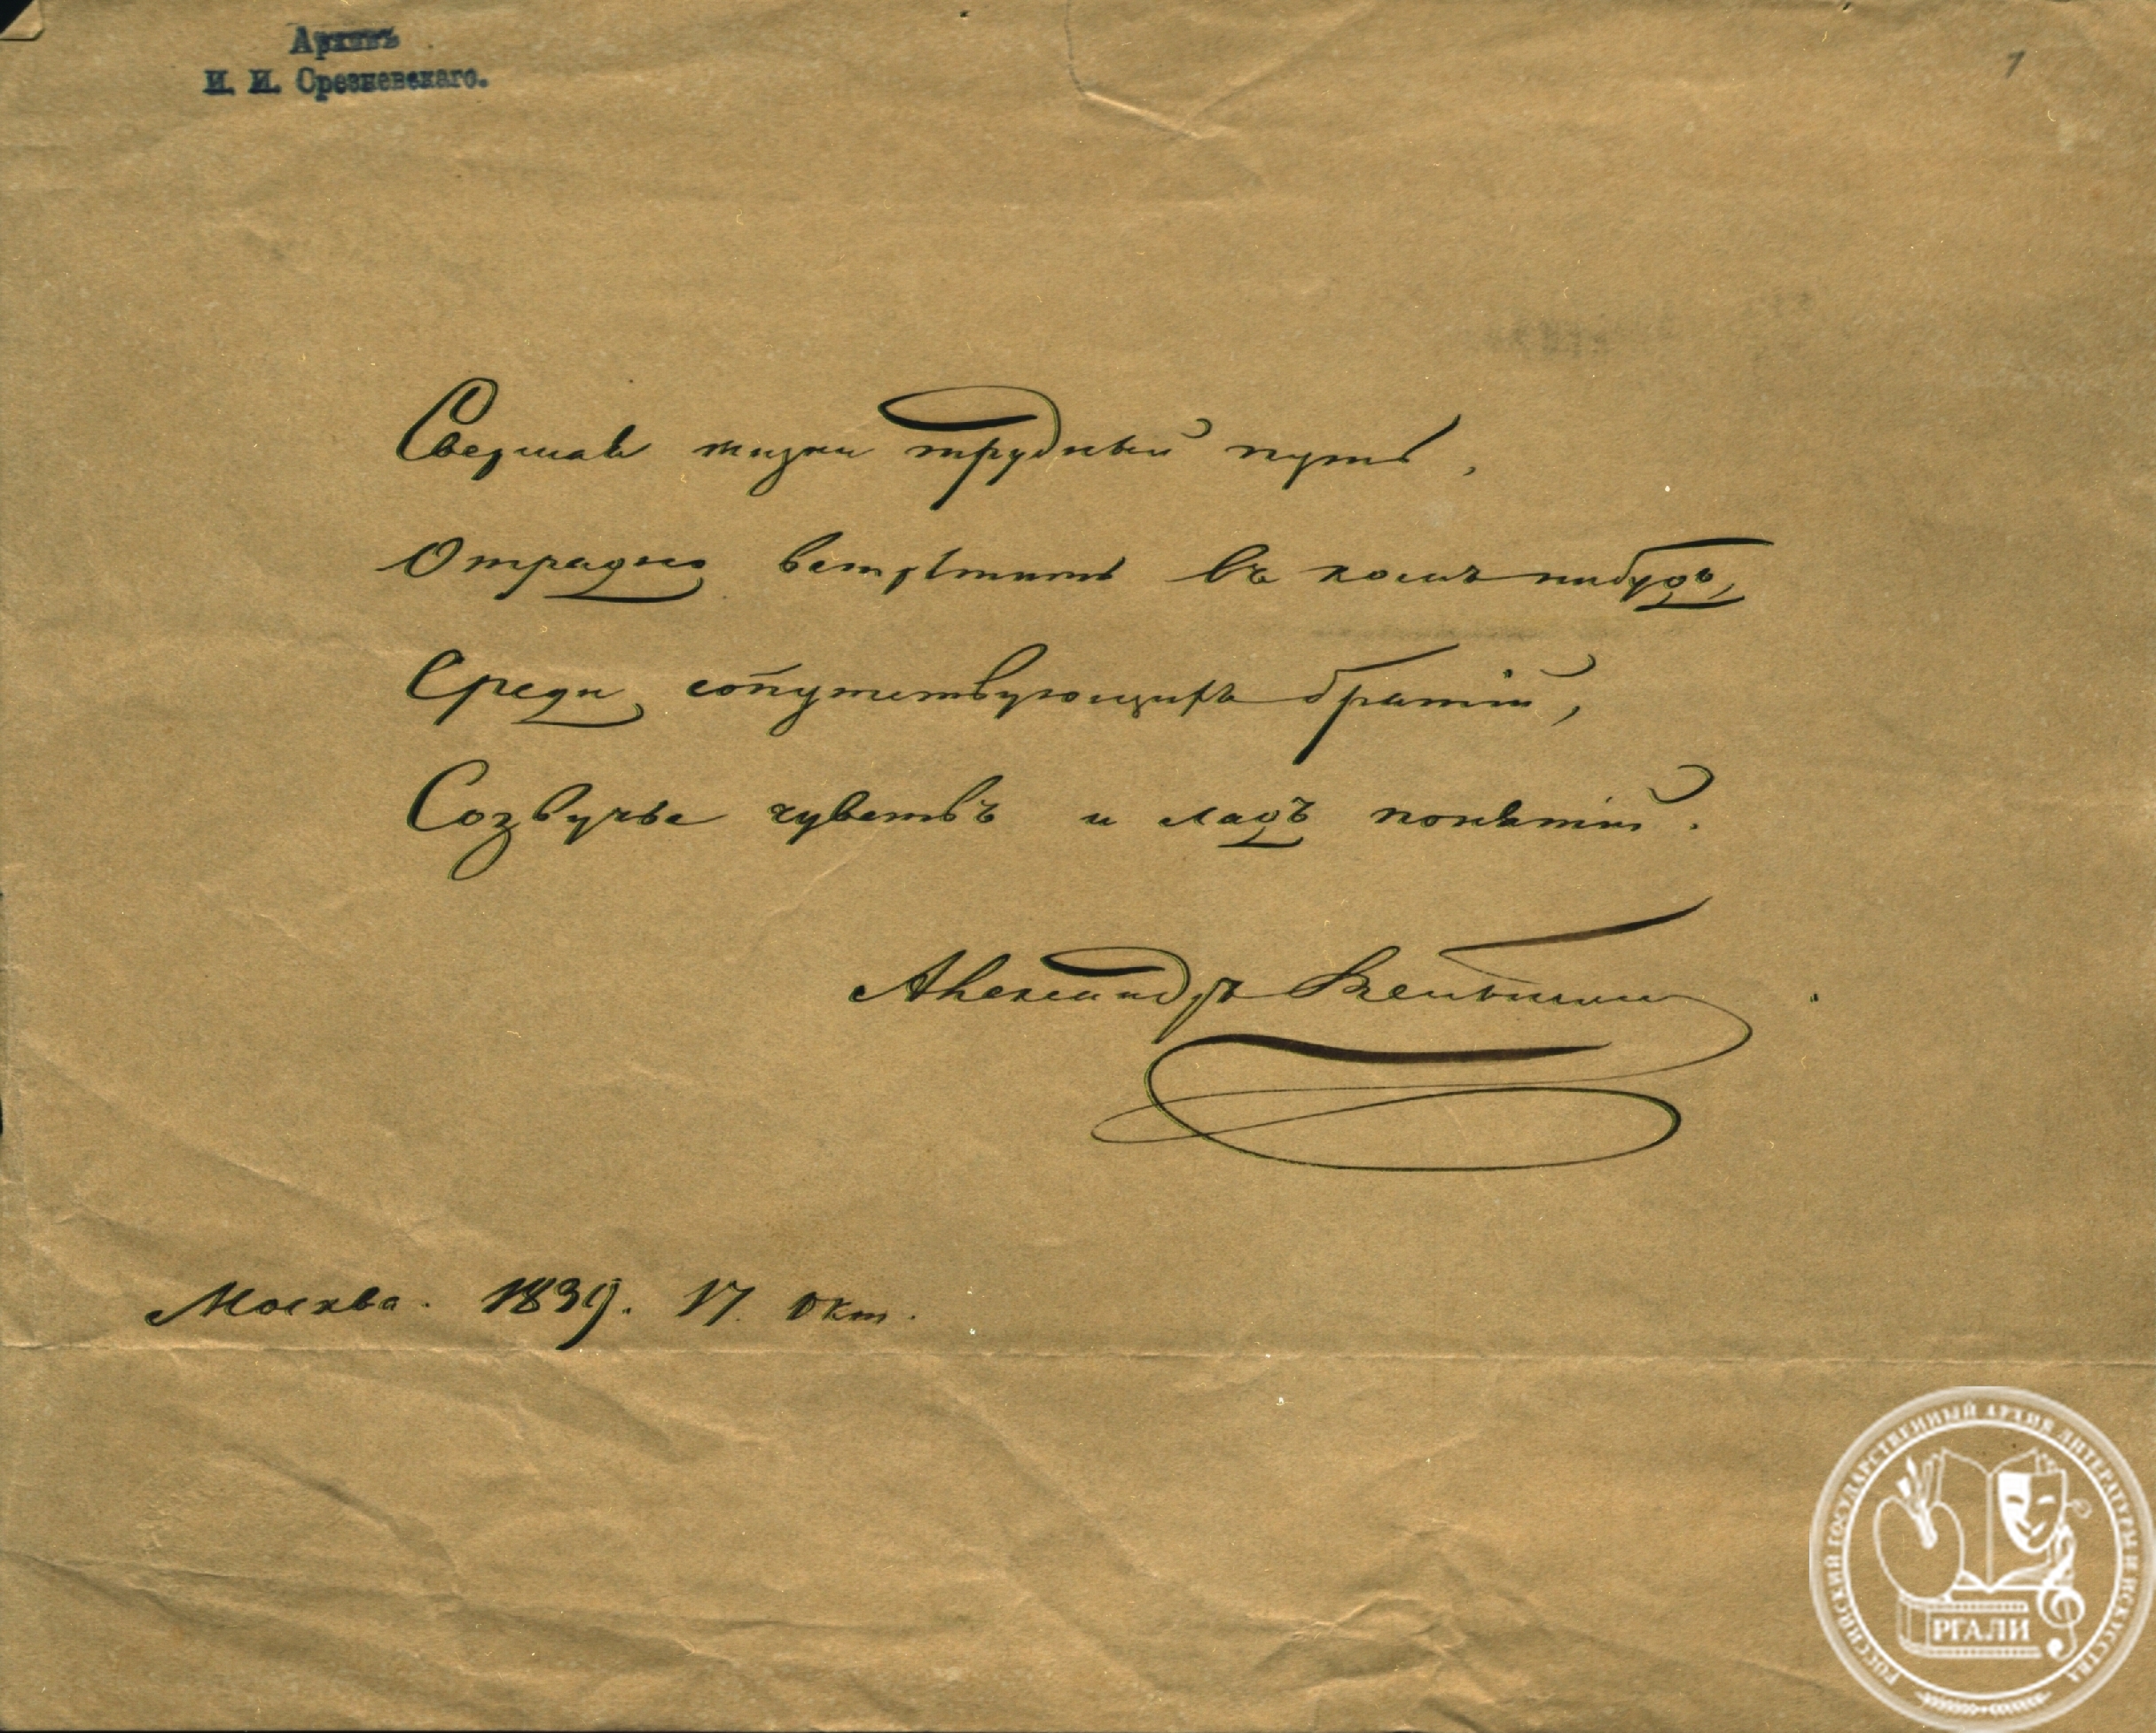 Архивъ
И. И. Срезневскаго.
1
Свершая жизни трудный путь,
Отрадно встрѣтить въ комъ нибудь,
Среди сопутствующихъ братій,
Созвучье чувствъ и ладъ понятій.
Александръ
Москва. 1839. 17. Окт.
РОССИЙСКИЙ ГОСУДАРСТВЕННЫЙ АРХИВ ЛИТЕРАТУРЫ И ИСКУССТВА
РГАЛИ